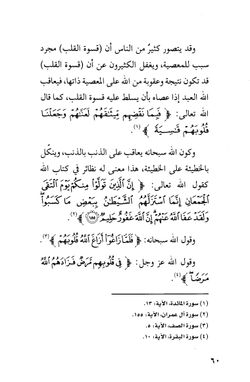 وقد يتصور كثيرٌ من الناس أن (قسوة القلب) مجرد
سبب للمعصية، ويغفل الكثيرون عن أن (قسوة القلب)
قد تكون نتيجة وعقوبة من الله على المعصية ذاتها، فيعاقب
الله العبد إذا عصاه بأن يسلط عليه قسوة القلب، كما قال
الله تعالى: ﴿ فَبِمَا نَقْضِهِم مِّيثَٰقَهُمْ لَعَنَّٰهُمْ وَجَعَلْنَا
قُلُوبَهُمْ قَٰسِيَةً ﴾(١).
وكون الله سبحانه يعاقب على الذنب بالذنب، وينكّل
بالخطيئة على الخطيئة، هذا معنى له نظائر في كتاب الله
كقول الله تعالى: ﴿ إِنَّ ٱلَّذِينَ تَوَلَّوْا۟ مِنكُمْ يَوْمَ ٱلْتَقَى
ٱلْجَمْعَانِ إِنَّمَا ٱسْتَزَلَّهُمُ ٱلشَّيْطَٰنُ بِبَعْضِ مَا كَسَبُوا۟
وَلَقَدْ عَفَا ٱللَّهُ عَنْهُمْ إِنَّ ٱللَّهَ غَفُورٌ حَلِيمٌ ١٥٥ ﴾(٢).
وقول الله سبحانه: ﴿ فَلَمَّا زَاغُوٓا۟ أَزَاغَ ٱللَّهُ قُلُوبَهُمْ ﴾(٣).
وقول الله عز وجل: ﴿ فِى قُلُوبِهِم مَّرَضٌ فَزَادَهُمُ ٱللَّهُ
مَرَضًا ﴾(٤).
(١) سورة المائدة، الآية: ١٣.
(٢) سورة آل عمران، الآية: ١٥٥.
(٣) سورة الصف، الآية: ٥.
(٤) سورة البقرة، الآية: ١٠.
٦٠